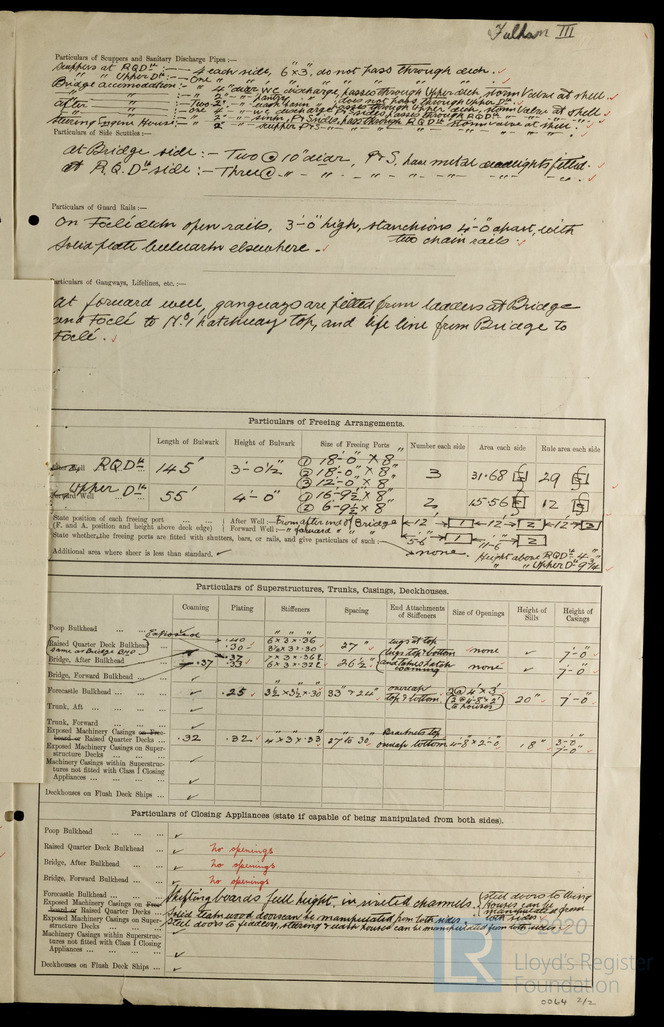 Fulham III
Particulars of Scuppers and Sanitary Discharge Pipes :—
Scuppers at R.Q.Dk :— 4 each side, 6"x3", do not pass through deck.
" " Upper Dk :— One "
Bridge accomodation :— " 4" diar. W.C. discharge, passes through Upper deck, storm valve at shell.
" 2" " pantry " does not pass through Upper Dk
After " :— Two 2" "
" One 4" " W.C. discharge
Steering Engine House :— " 2" "
" 2" scupper P&S
Particulars of Side Scuttles :—
At Bridge side :— Two @ 10" diar, P&S, have metal deadlights fitted.
At R.Q.Dk side :— Three @ " " " " " " "
Particulars of Guard Rails :—
On Focle deck open rails, 3'-0" high, stanchions 4'-0" apart, with
two chain rails.
Solid plate bulwarks elsewhere.
Particulars of Gangways, Lifelines, etc. :—
At forward well, gangways are fitted from ladders at Bridge
and Focle to No 1 hatchway top, and life line from Bridge to
Focle.
Particulars of Freeing Arrangements.
Length of Bulwark Height of Bulwark Size of Freeing Ports Number each side Area each side Rule area each side
After Well RQDk 145' 3'-0½" ① 18'-0" x 8" ② 18'-0" x 8" ③ 12'-0" x 8" 3 31.68 29
Forward Well Upper Dk 55' 4'-0" ① 16-9½" x 8" ② 6-9½" x 8" 2 15.56 12
State position of each freeing port ... ... After Well :— From after end of Bridge 12 1 12 2 12 3
(F. and A. position and height above deck edge) Forward Well :— " forward " " " 5'-6" 1 11'-6" 2
State whether the freeing ports are fitted with shutters, bars, or rails, and give particulars of such :— none.
Height above RQDk 4"
Additional area where sheer is less than standard. " " Upper Dk 9¾"
Particulars of Superstructures, Trunks, Casings, Deckhouses.
Coaming Plating Stiffeners Spacing End Attachments of Stiffeners Size of Openings Height of Sills Height of Casings
Poop Bulkhead ... ...
Raised Quarter Deck Bulkhead exposed .40 .30 6 x 3 x .36 27" lugs at top none 7'-0"
same as Bridge BHD
Bridge, After Bulkhead ... .37 .37 .33 7 x 3 x .36 6 x 3 x .32 26½" lugs top & bottom none 7'-0"
Bridge, Forward Bulkhead ...
Forecastle Bulkhead ... ... .25 3½ x 3½ x .30 33" & 24" overlap top & bottom 2 @ 4' x 3' to houses 20" 7'-0"
Trunk, Aft ... ...
Trunk, Forward ... ...
Exposed Machinery Casings on Freeboard or Raised Quarter Decks ... .32 .32 4 x 3 x .33 27 to 30 Brackets top overlap bottom 4'-8 x 2'-0 18" 7'-0"
Exposed Machinery Casings on Superstructure Decks ... ...
Machinery Casings within Superstructures not fitted with Class I Closing Appliances ... ...
Deckhouses on Flush Deck Ships ...
Particulars of Closing Appliances (state if capable of being manipulated from both sides).
Poop Bulkhead ... ... ...
Raised Quarter Deck Bulkhead ... No openings
Bridge, After Bulkhead ... ... No openings
Bridge, Forward Bulkhead ... No openings
Forecastle Bulkhead ... ... Shifting boards full height in riveted channels. (steel doors to houses can be manipulated from both sides)
Exposed Machinery Casings on Freeboard or Raised Quarter Decks ... Solid teak wood doors can be manipulated from both sides
Exposed Machinery Casings on Superstructure Decks ... ... Steel doors to fiddley, steering gear houses can be manipulated from both sides
Machinery Casings within Superstructures not fitted with Class I Closing Appliances ... ...
Deckhouses on Flush Deck Ships ...
LR
2020
Lloyd's Register
Foundation
0064 2/2